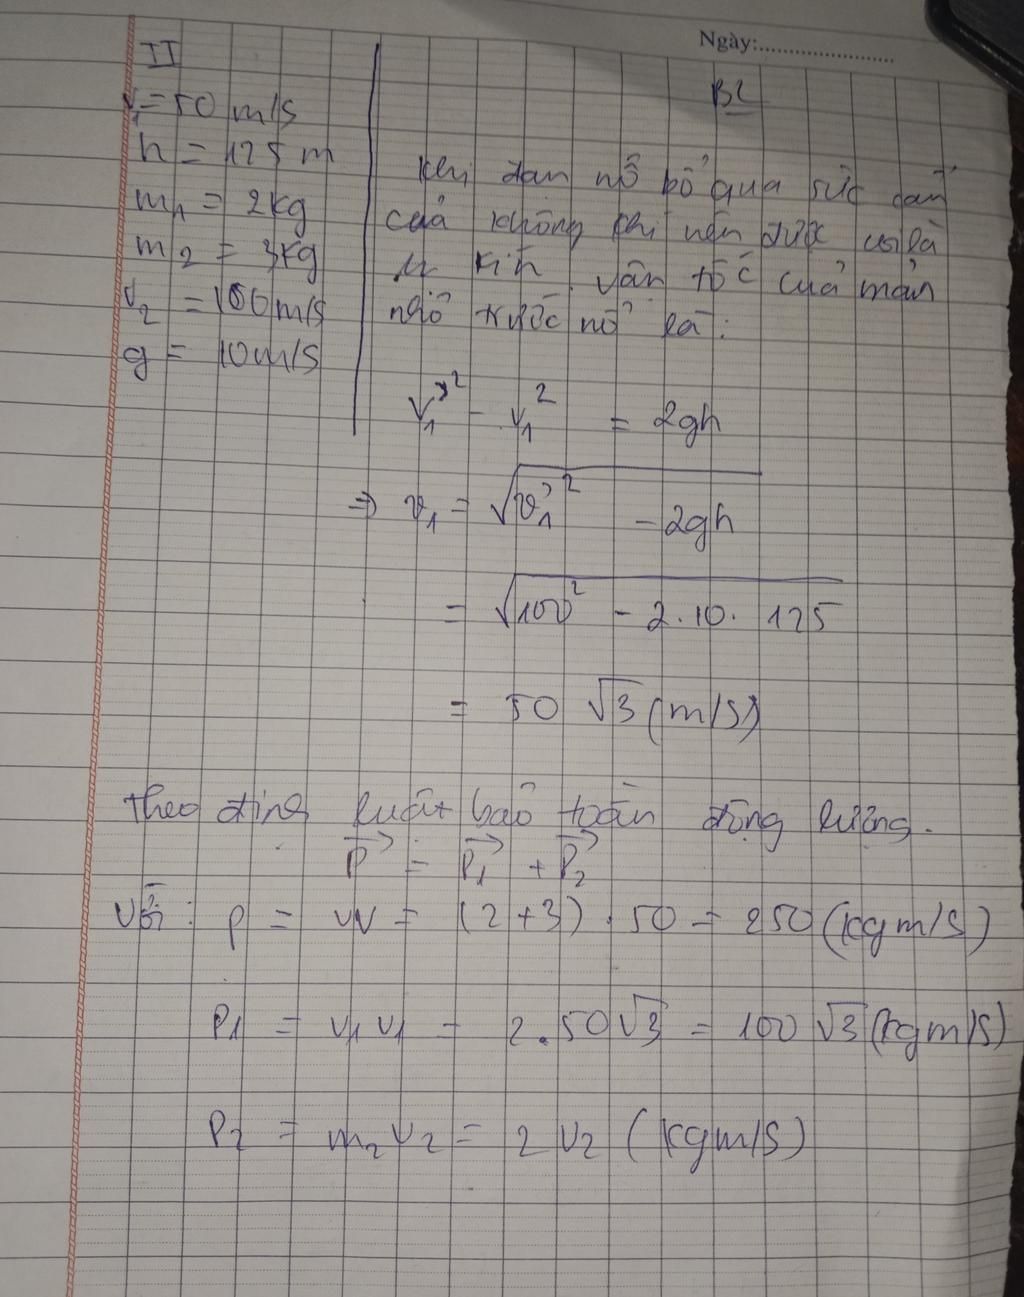 Ngày:
II
BL
v₁ = 50 m/s
h = 125 m
m₁ = 2kg
m₂ = 3kg
v₂ = 100m/s
g = 10m/s
khi đạn nổ bỏ qua sức cản
của không khí nên được coi là
kín vận tốc của mảnh
nhỏ trước nổ là:
v₁'² - v₁² = 2gh
⇒ v₁ = √(v₁'² - 2gh)
= √(100² - 2.10. 125)
= 50 √3 (m/s)
theo định luật bảo toàn động lượng.
p⃗ = p⃗₁ + p⃗₂
Với: p = = (2+3) . 50 = 250 (kgm/s)
P₁ = = 2.50√3 = 100 √3 (kgm/s)
P₂ = m₂ v₂ = 2 v₂ (kgm/s)